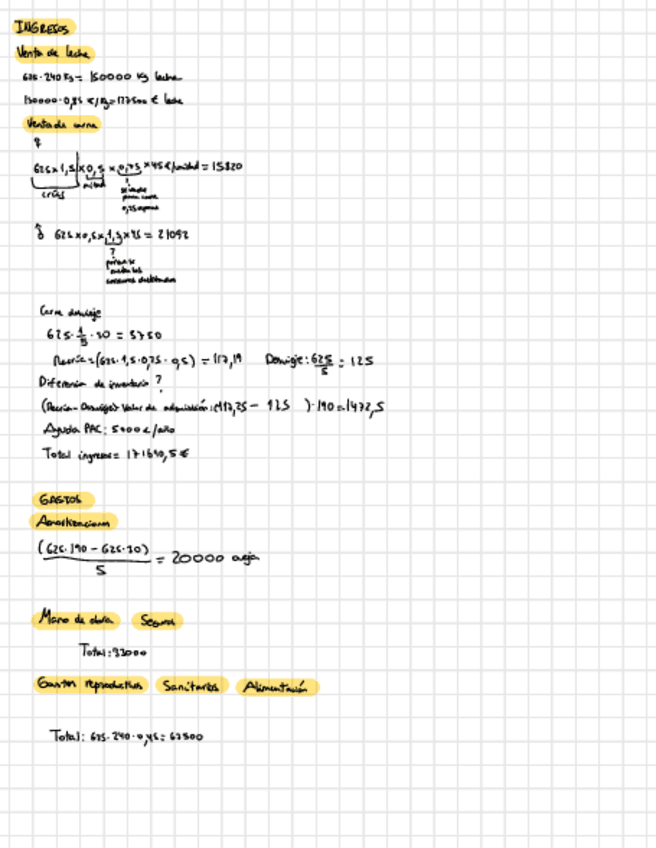 INGRESOS
Venta de leche
625·240 Kg = 150000 Kg leche
150000·0,85 €/Kg = 127500 € leche
Venta de carne
♀
625 x 1,5 x 0,5 x 0,75 x 45 €/unidad = 15820
crías mitad
para carne
♂ 625 x 0,5 x 1,5 x 45 = 21092
?
porque se
Carne desvieje
625 · 1/5 · 30 = 3750
Recría = (625 · 1,5 · 0,25 · 0,5) = 117,19 Desvieje: 625/5 = 125
Diferencia de inventario ?
(Recría - Desvieje) Valor de adquisición: (117,25 - 125 ) · 190 = 1472,5
Ayuda PAC: 5000 €/año
Total ingresos = 171690,5 €
GASTOS
Amortizaciones
(625 · 190 - 625 · 30) / 5 = 20000 oveja
Mano de obra Seguros
Total: 33000
Gastos reproductivos Sanitarios Alimentación
Total: 625 · 240 · 0,45 = 67500